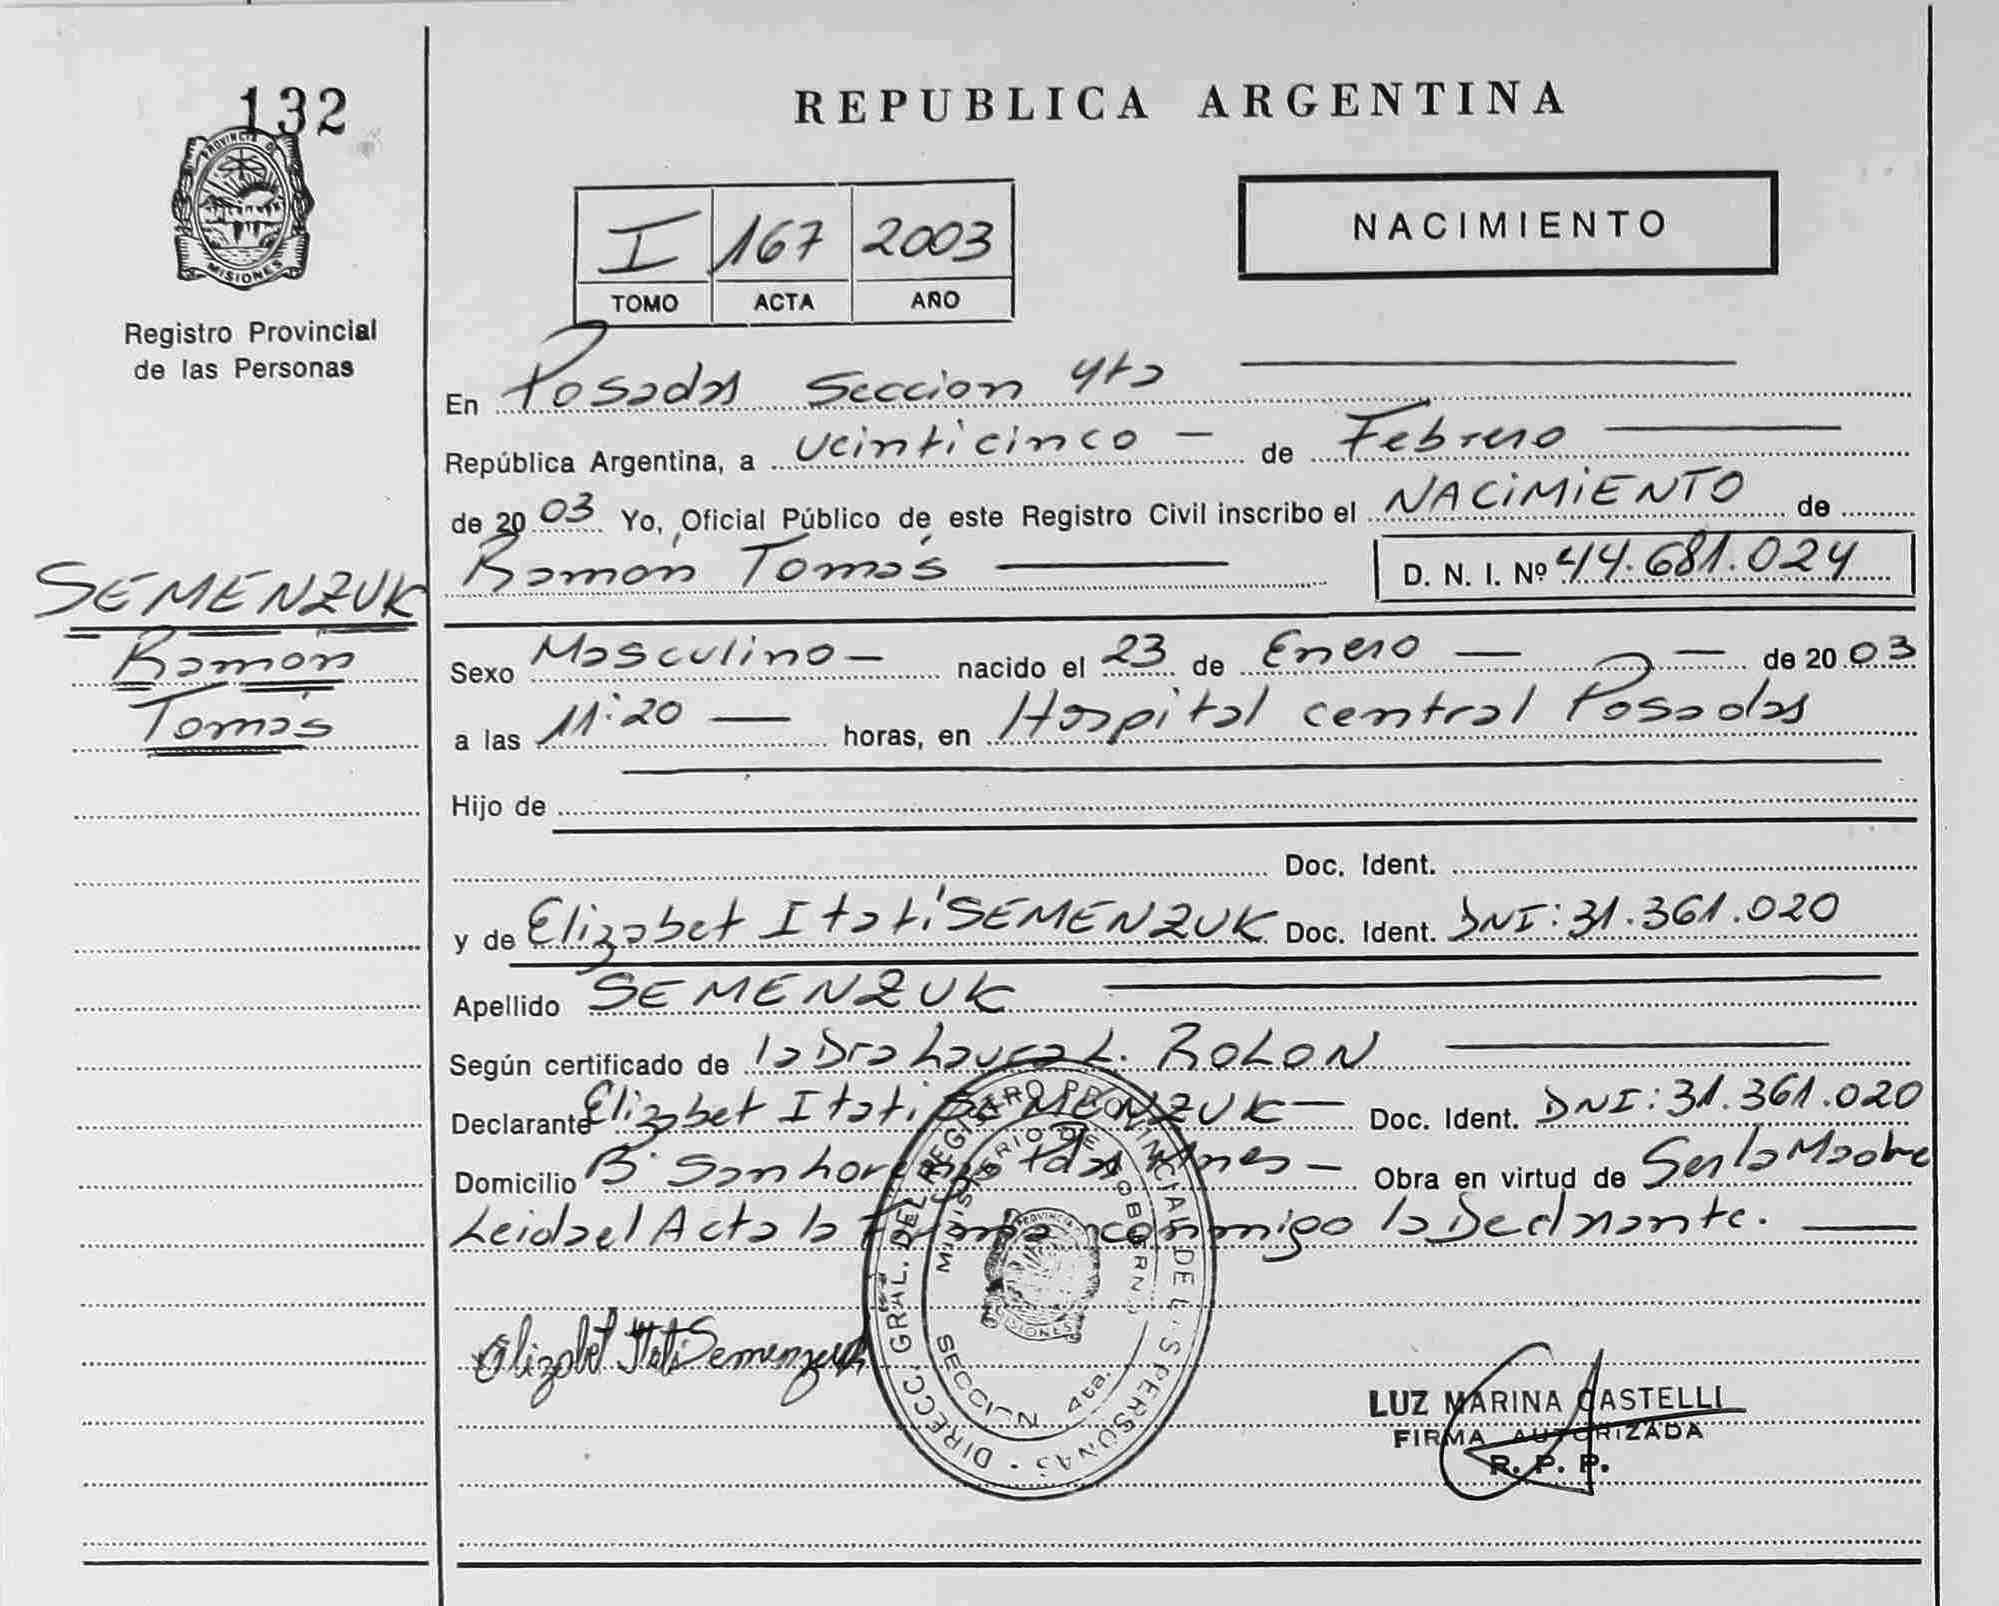 132
PROVINCIA DE
MISIONES
Registro Provincial
de las Personas
SEMENZUK
Ramón
Tomás
REPUBLICA ARGENTINA
I 167 2003
TOMO ACTA AÑO
NACIMIENTO
En Posadas Seccion 4ta
República Argentina, a veinticinco — de Febrero
de 2003 Yo, Oficial Público de este Registro Civil inscribo el NACIMIENTO de
Ramón Tomás D. N. I. Nº 44.681.024
Sexo Masculino — nacido el 23 de Enero — — de 2003
a las 11:20 — horas, en Hospital central Posadas
Hijo de
Doc. Ident.
y de Elizabet Itatí SEMENZUK Doc. Ident. DNI: 31.361.020
Apellido SEMENZUK
Según certificado de la Dra Laura L. ROLON
Declarante Elizabet Itatí SEMENZUK — Doc. Ident. DNI: 31.361.020
Domicilio B° San Lorenzo Pdas Mnes — Obra en virtud de Ser la Madre
Leida el Acta la Firma conmigo la Declarante.
Elizabet Itati Semenzuk
DIRECC. GRAL. DEL REGISTRO PROVINCIAL DE LAS PERSONAS
MINISTERIO DE GOBIERNO
PROVINCIA DE
MISIONES
SECCION 4ta.
LUZ MARINA CASTELLI
FIRMA AUTORIZADA
R. P. P.